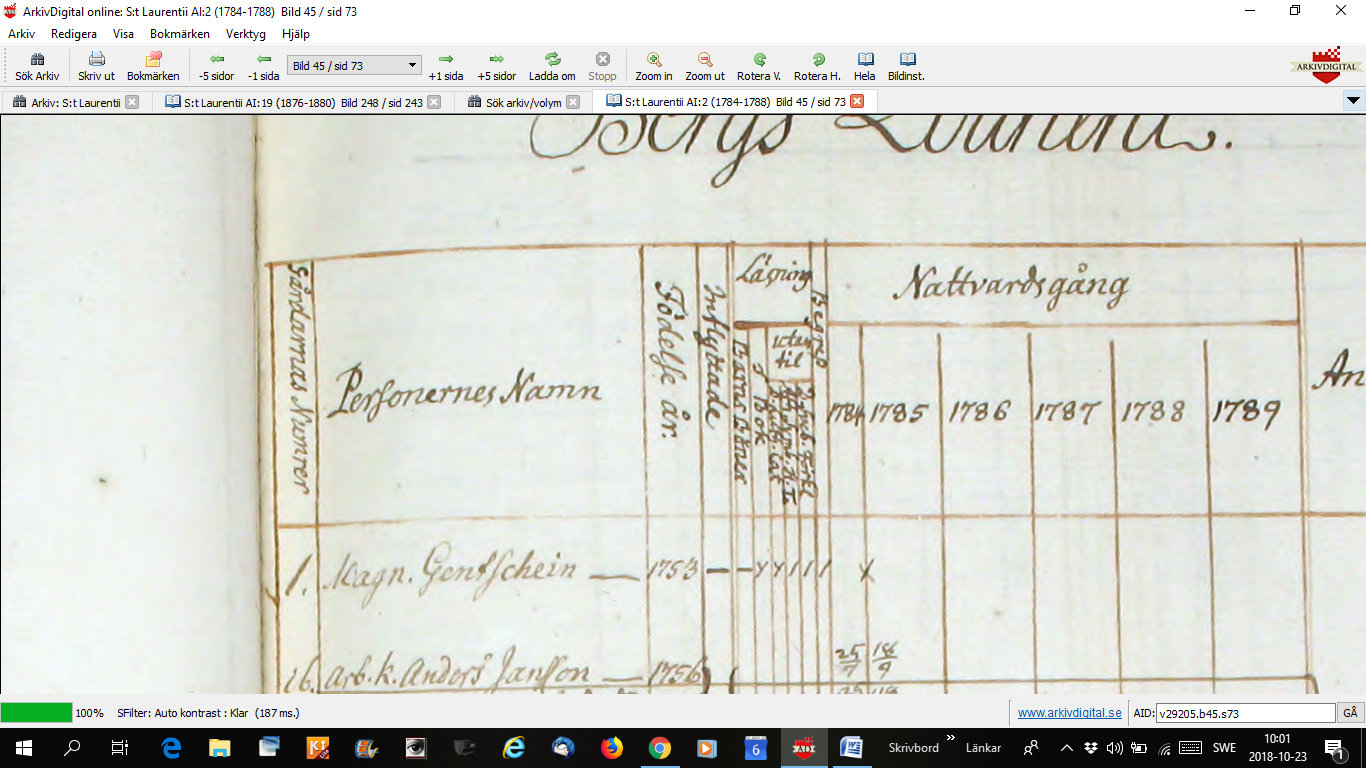 ArkivDigital online: S:t Laurentii AI:2 (1784-1788) Bild 45 / sid 73
Arkiv Redigera Visa Bokmärken Verktyg Hjälp
Sök Arkiv Skriv ut Bokmärken -5 sidor -1 sida Bild 45 / sid 73 +1 sida +5 sidor Ladda om Stopp Zoom in Zoom ut Rotera V. Rotera H. Hela Bildinst. ARKIVDIGITAL
Arkiv: S:t Laurentii S:t Laurentii AI:19 (1876-1880) Bild 248 / sid 243 Sök arkiv/volym S:t Laurentii AI:2 (1784-1788) Bild 45 / sid 73
Bergs
Gårdarnas Numrer
Personernes Namn
Födelse år.
Inflyttade
Läsning
Barns Böner
Bok
utan
til
Begrep
Nattvardsgång
1784 1785 1786 1787 1788 1789
An
1. Magn. Gentschein — 1753 — — x x 1 1 1 x
16. Arb. k. Anders Janson — 1756 25/9 18/9
100% SFilter: Auto kontrast : Klar (187 ms.) www.arkivdigital.se AID: v29205.b45.s73 GÅ
Skrivbord » Länkar SWE 10:01
2018-10-23 1